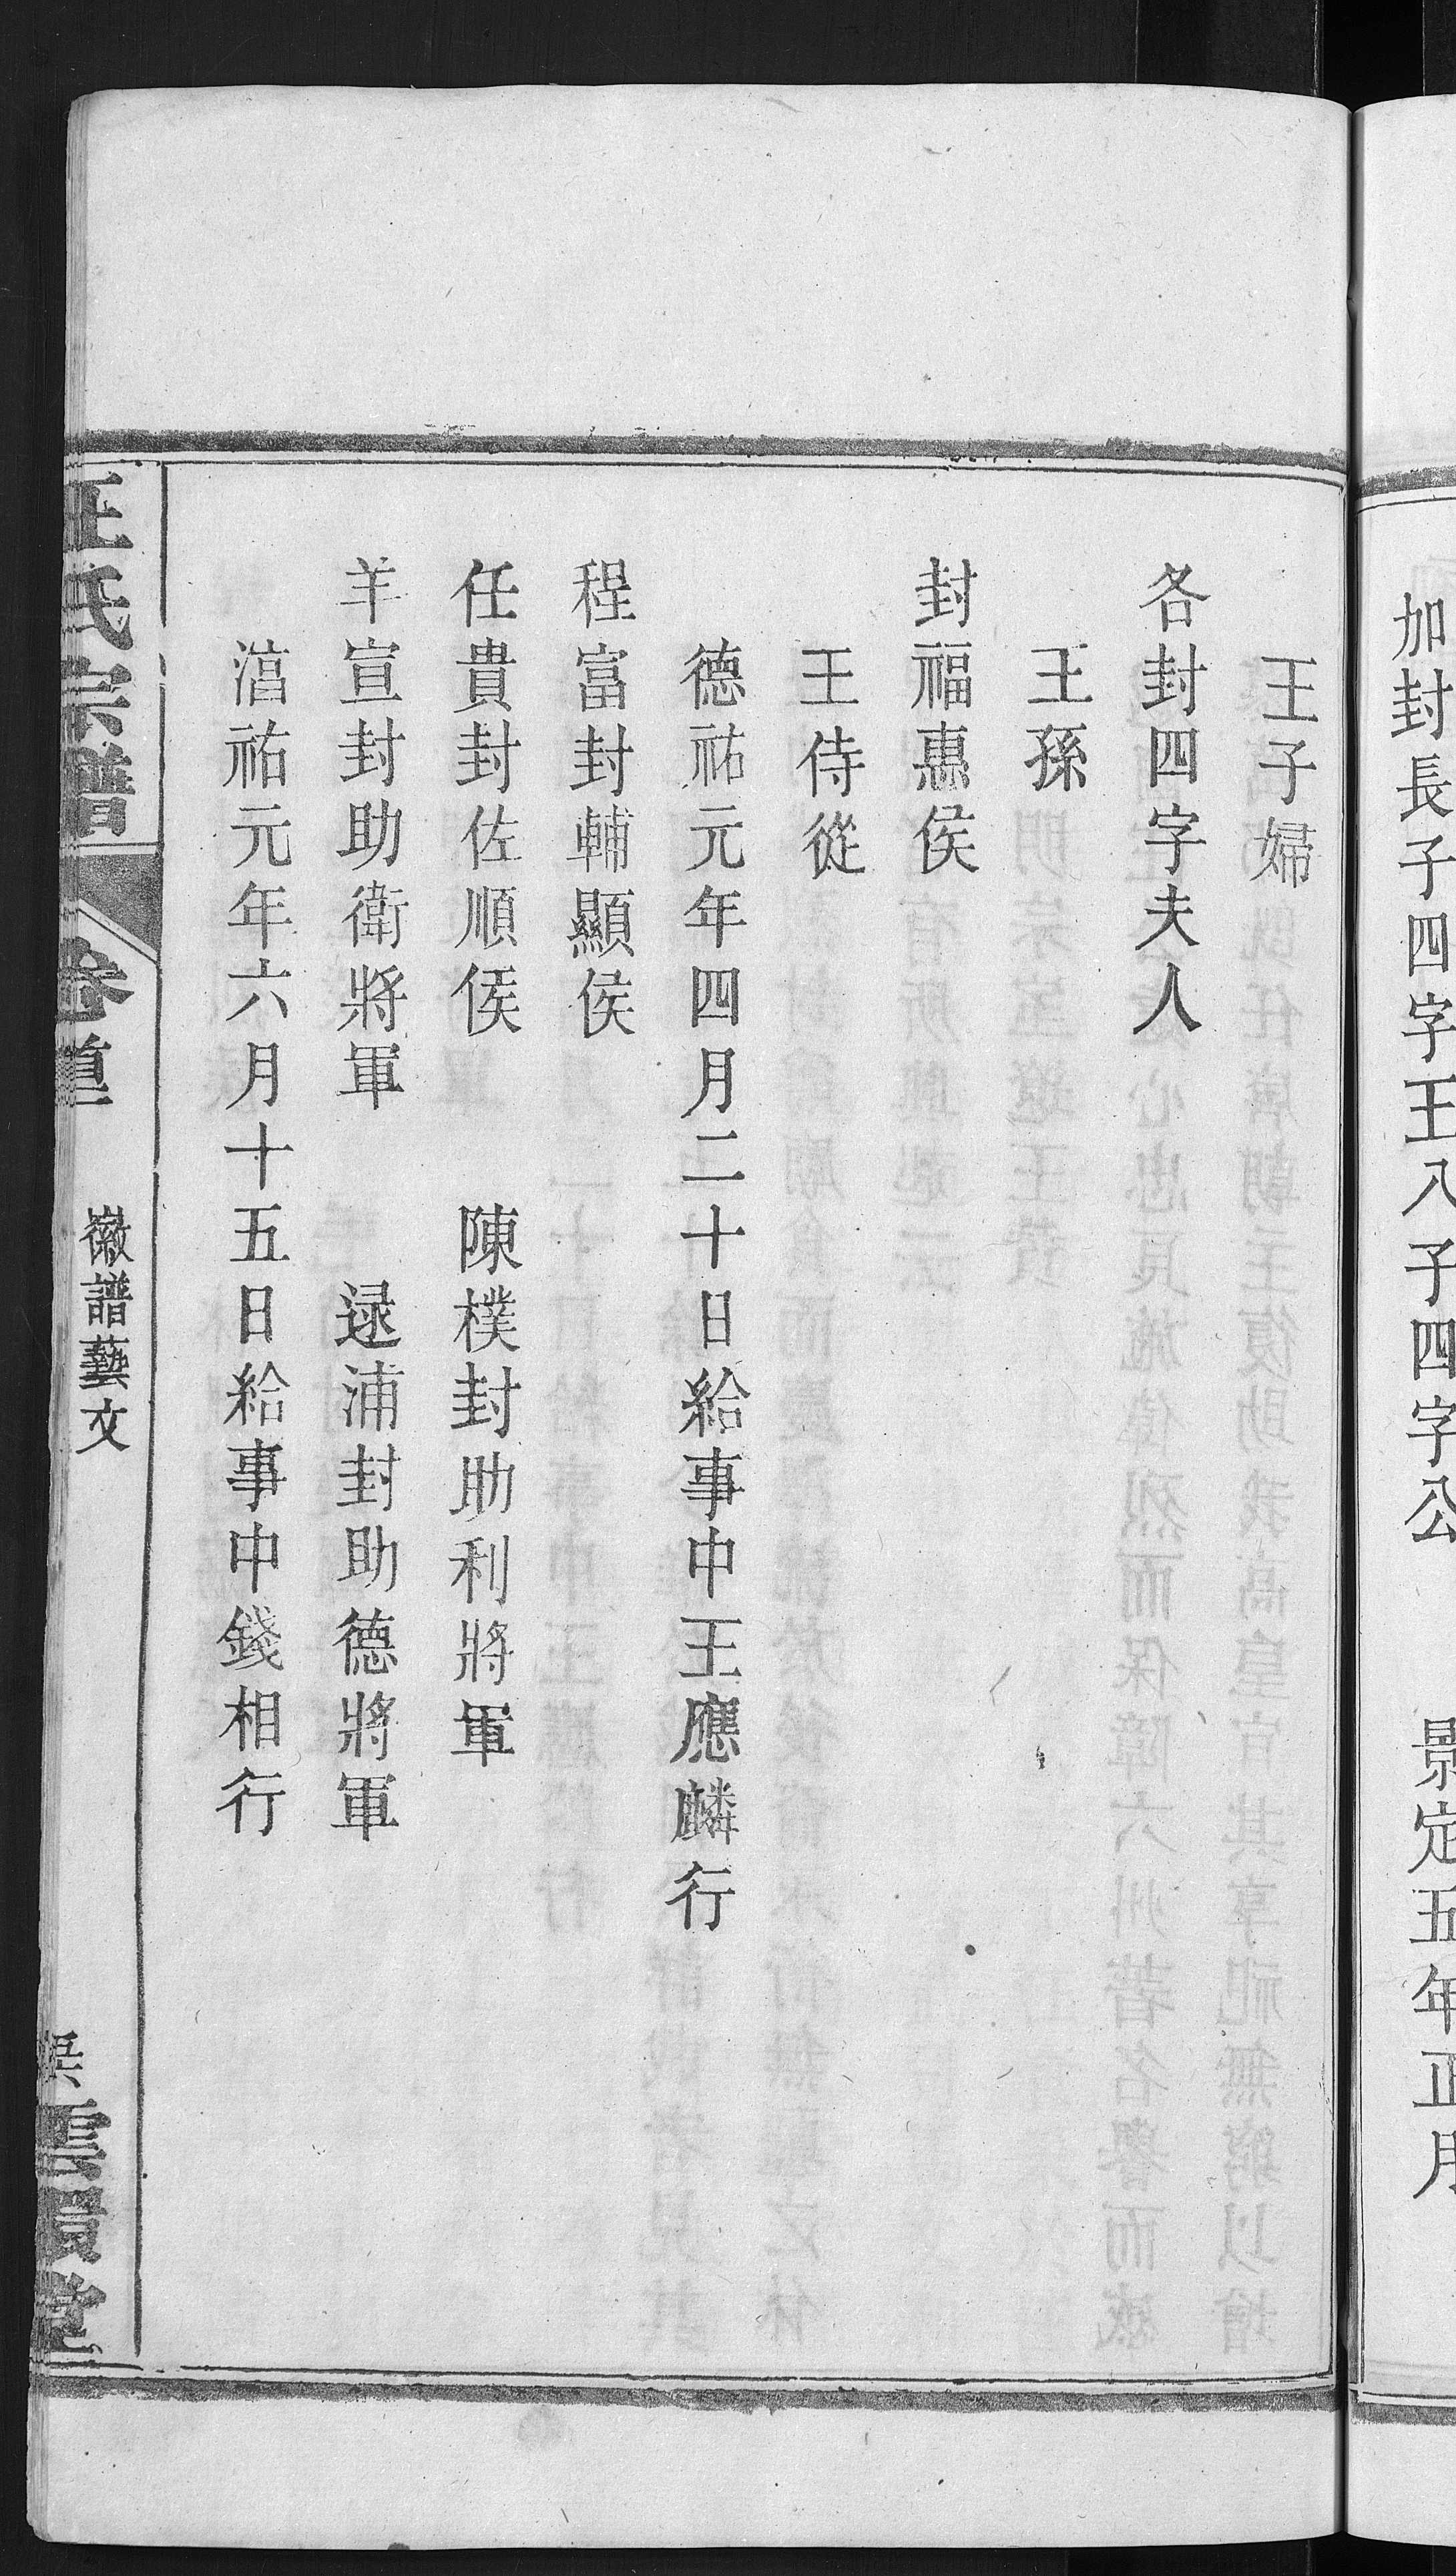 加封長子四字王八子四字公　景定五年正月
王子婦
各封四字夫人
王孫
封福惠侯
王侍從
德祐元年四月二十日給事中王應麟行
程富封輔顯侯
任貴封佐順侯　陳樸封助利將軍
羊宣封助衛將軍　逯浦封助德將軍
湻祐元年六月十五日給事中錢相行
汪氏宗譜　卷首　徽譜藝文